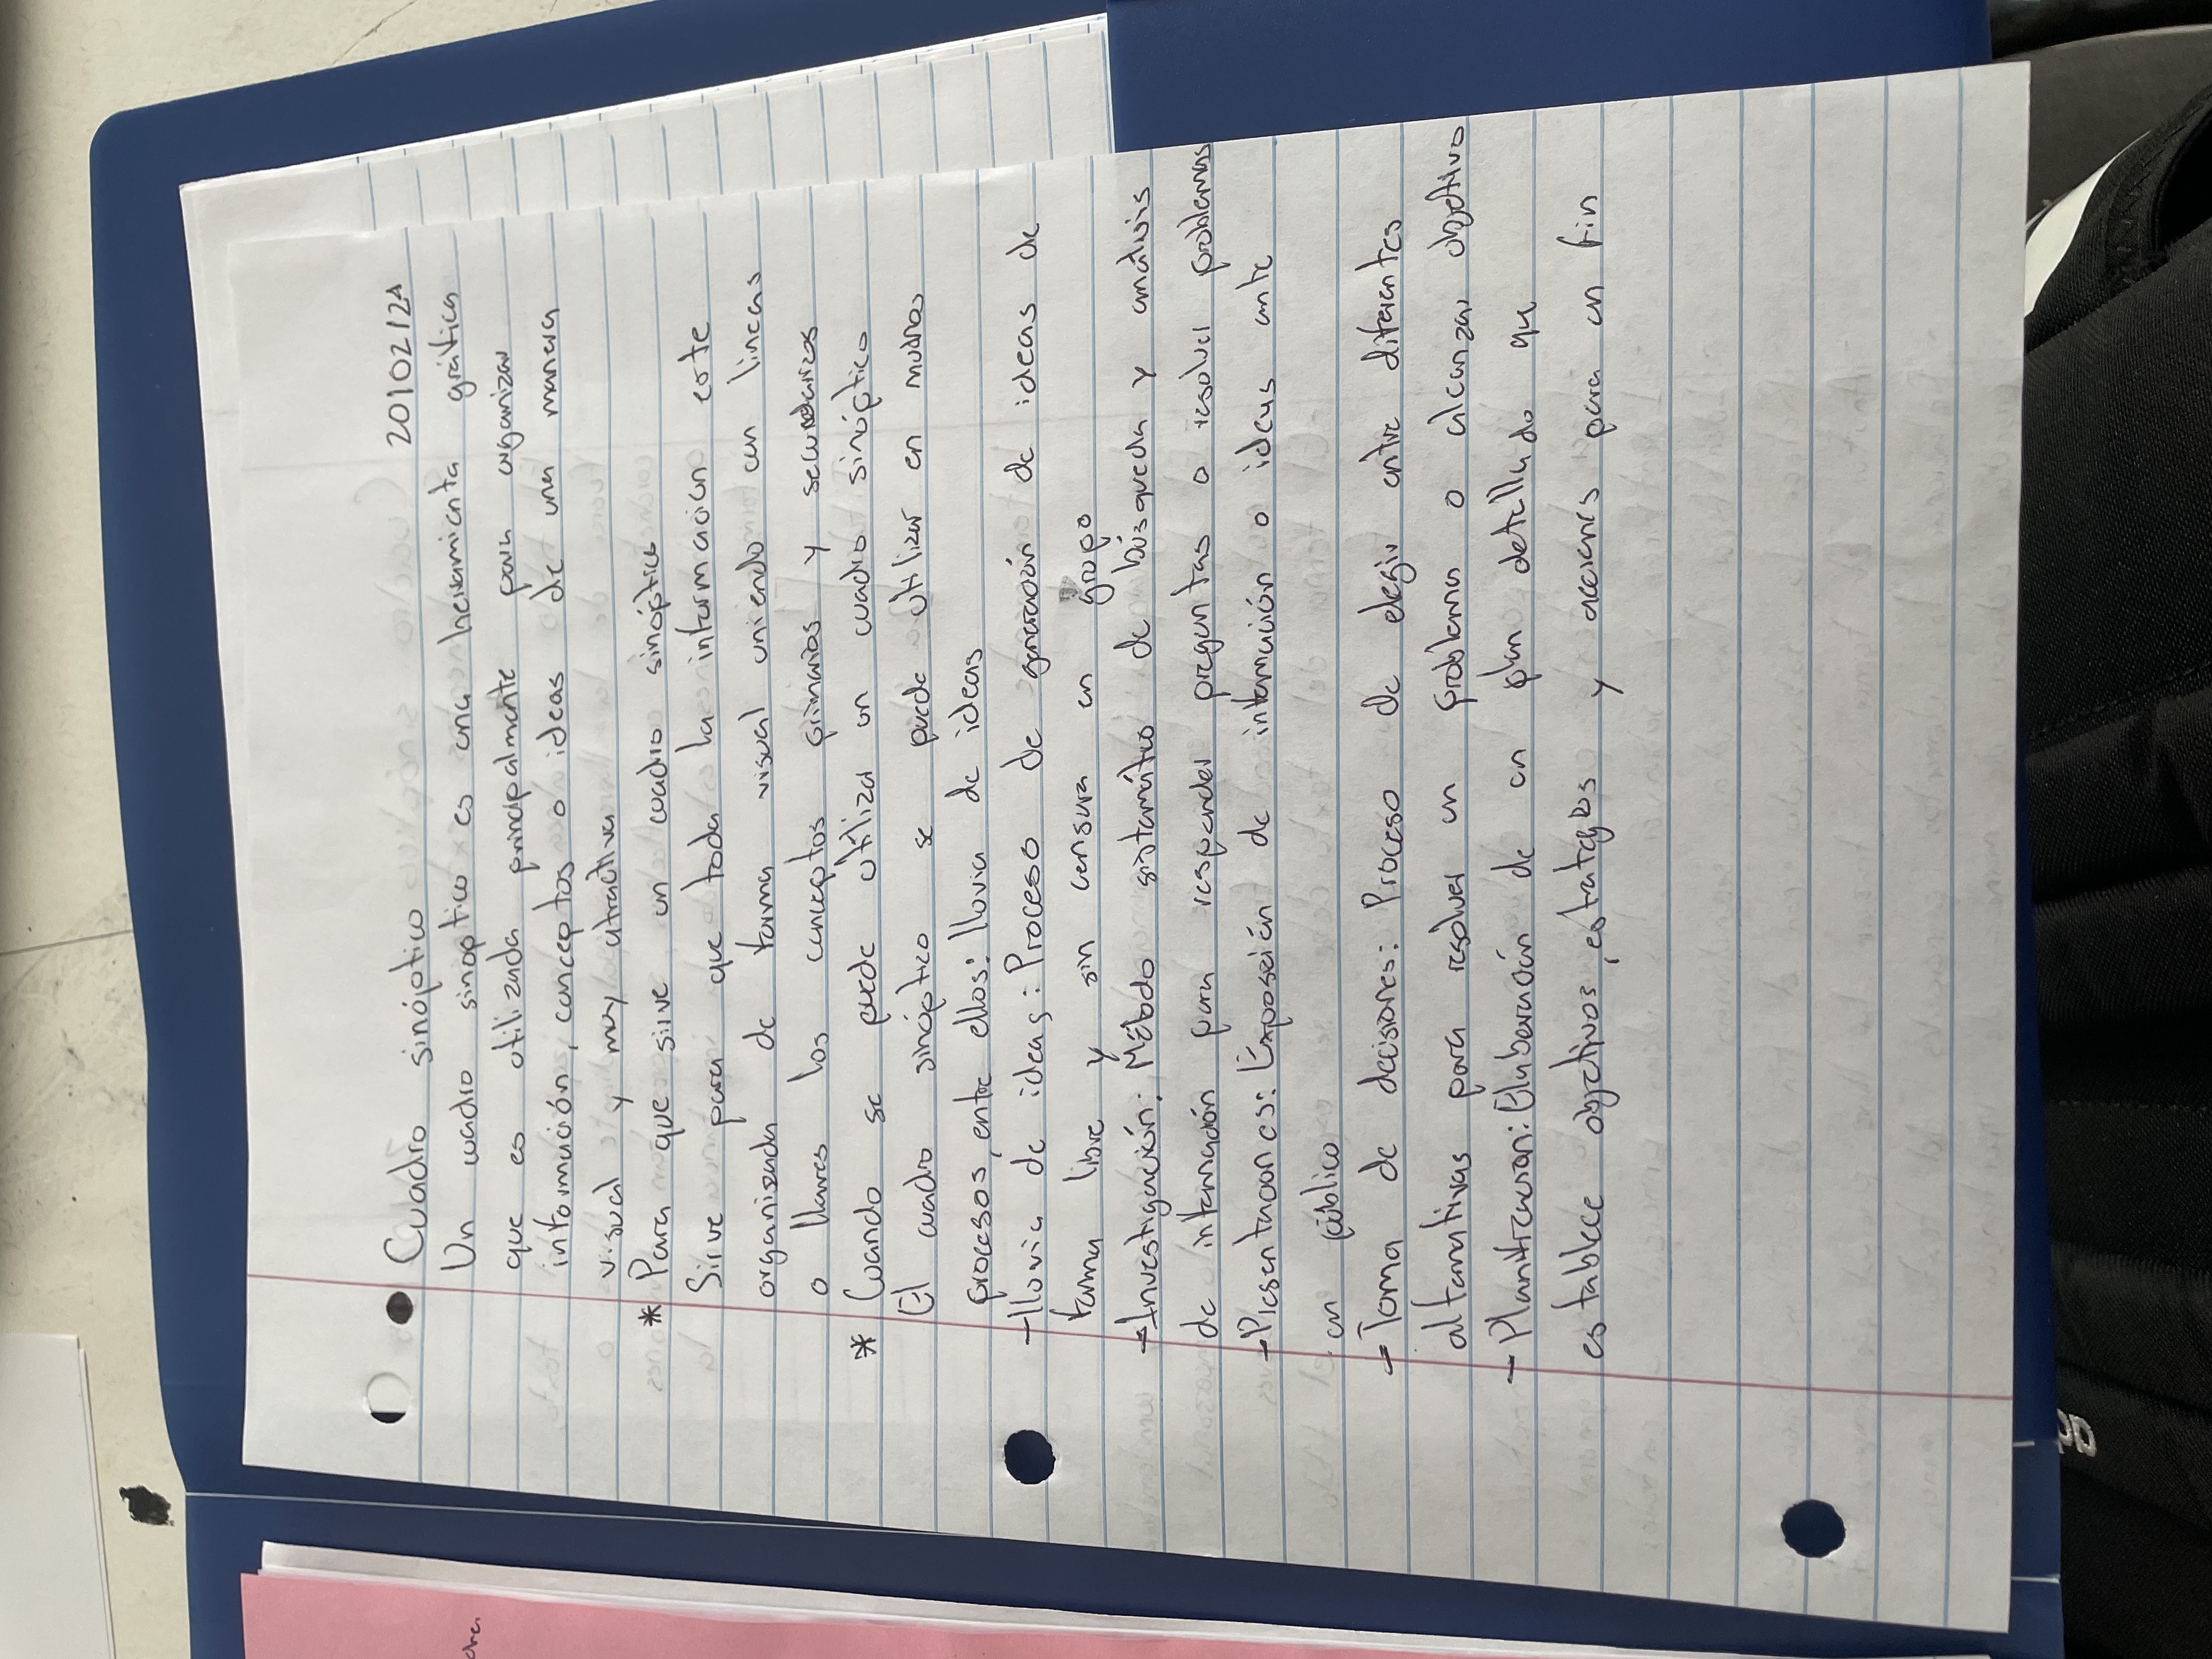 Cuadro sinóptico 20102121
Un cuadro sinoptico es una herramienta gráfica
que es utilizada principalmente para organizar
información, conceptos o ideas de una manera
visual y muy atractiva
* Para que sirve un cuadro sinóptico
Sirve para que toda la informacion este
organizada de forma visual uniendo con lineas
o llaves los conceptos primarios y secundarios
* Cuando se puede utilizar un cuadro sinóptico
El cuadro sinóptico se puede utilizar en muchos
procesos, entre ellos: lluvia de ideas
- lluvia de ideas: Proceso de generación de ideas de
forma libre y sin censura en grupo
- Investigación: Método sistemático de búsqueda y análisis
de información para responder preguntas o resolver problemas
- Presentaciones: Exposición de información o ideas ante
un público
- Toma de decisiones: Proceso de elegir entre diferentes
alternativas para resolver un problema o alcanzar objetivo
- Planificacion: Elaboración de un plan detallado que
establece objetivos, estrategias y acciones para un fin